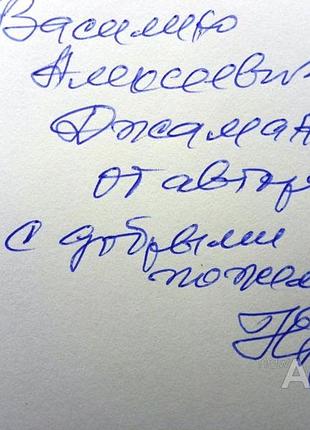 Василию
Алексееви
Джаман
от автор
с добрыми
пожел